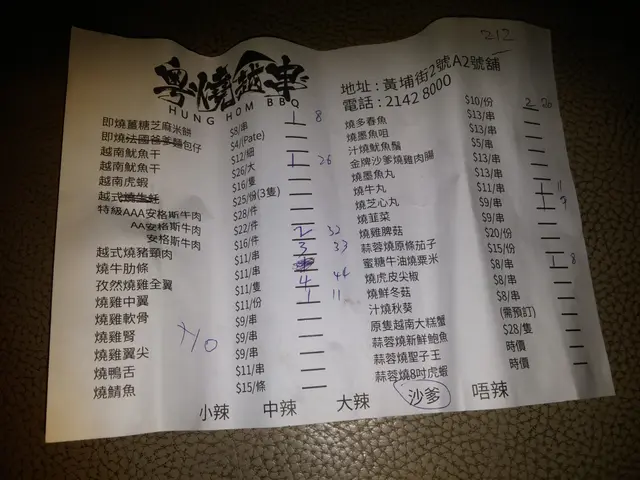 212
粵燒越串
HUNG HOM BBQ
地址：黃埔街2號A2號舖
電話：2142 8000
即燒薑糖芝麻米餅 $8/串 1 8
即燒法國爸爹麵包仔 $4/(Pate)
越南魷魚干 $12/細
越南魷魚干 $26/大 1 26
越南虎蝦 $16/隻
越式燒生蠔 $25/份(3隻)
特級AAA安格斯牛肉 $28/件
AA安格斯牛肉 $22/件
安格斯牛肉 $16/件 2 32
越式燒豬頸肉 $11/串 3 33
燒牛肋條 $11/串
孜然燒雞全翼 $11/隻 4 44
燒雞中翼 $11/份 1 11
燒雞軟骨 $9/串
燒雞腎 $9/串
燒雞翼尖 $9/串
燒鴨舌 $11/串
燒鯖魚 $15/條
燒多春魚 $10/份 2 20
燒墨魚咀 $13/串
汁燒魷魚鬚 $13/串
金牌沙爹燒雞肉腸 $5/串
燒墨魚丸 $13/串
燒牛丸 $13/串
燒芝心丸 $11/串 1 11
燒韮菜 $9/串 1 9
燒雞脾菇 $9/串
蒜蓉燒原條茄子 $20/份
蜜糖牛油燒粟米 $15/份
燒虎皮尖椒 $8/串 1 8
燒鮮冬菇 $8/串
汁燒秋葵
原隻越南大糕蟹 (需預訂)
蒜蓉燒新鮮鮑魚 $28/隻
蒜蓉燒聖子王 時價
蒜蓉燒8吋虎蝦 時價
小辣 中辣 大辣 沙爹 唔辣